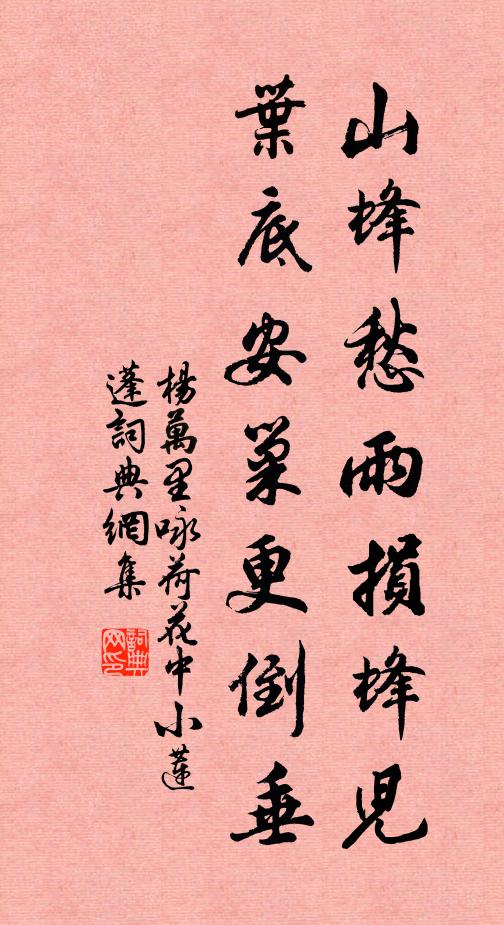 山蜂愁雨損蜂兒
葉底安巢更倒垂
楊萬里咏荷花中小蓮
蓬詞典網集
詞典
网印